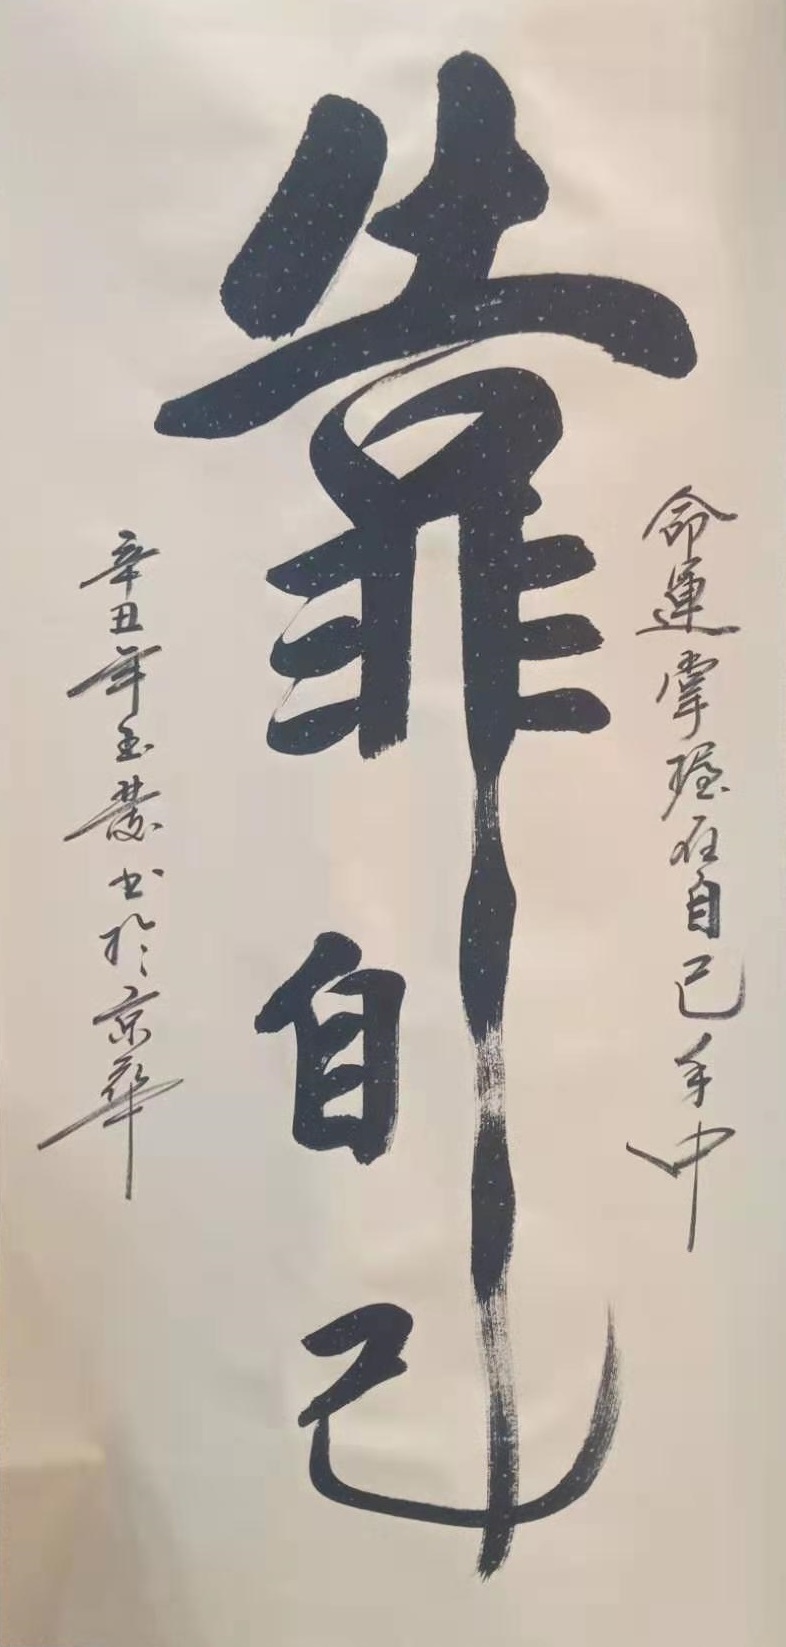 命運掌握在自己手中
靠自己
辛丑年玉發书於京华